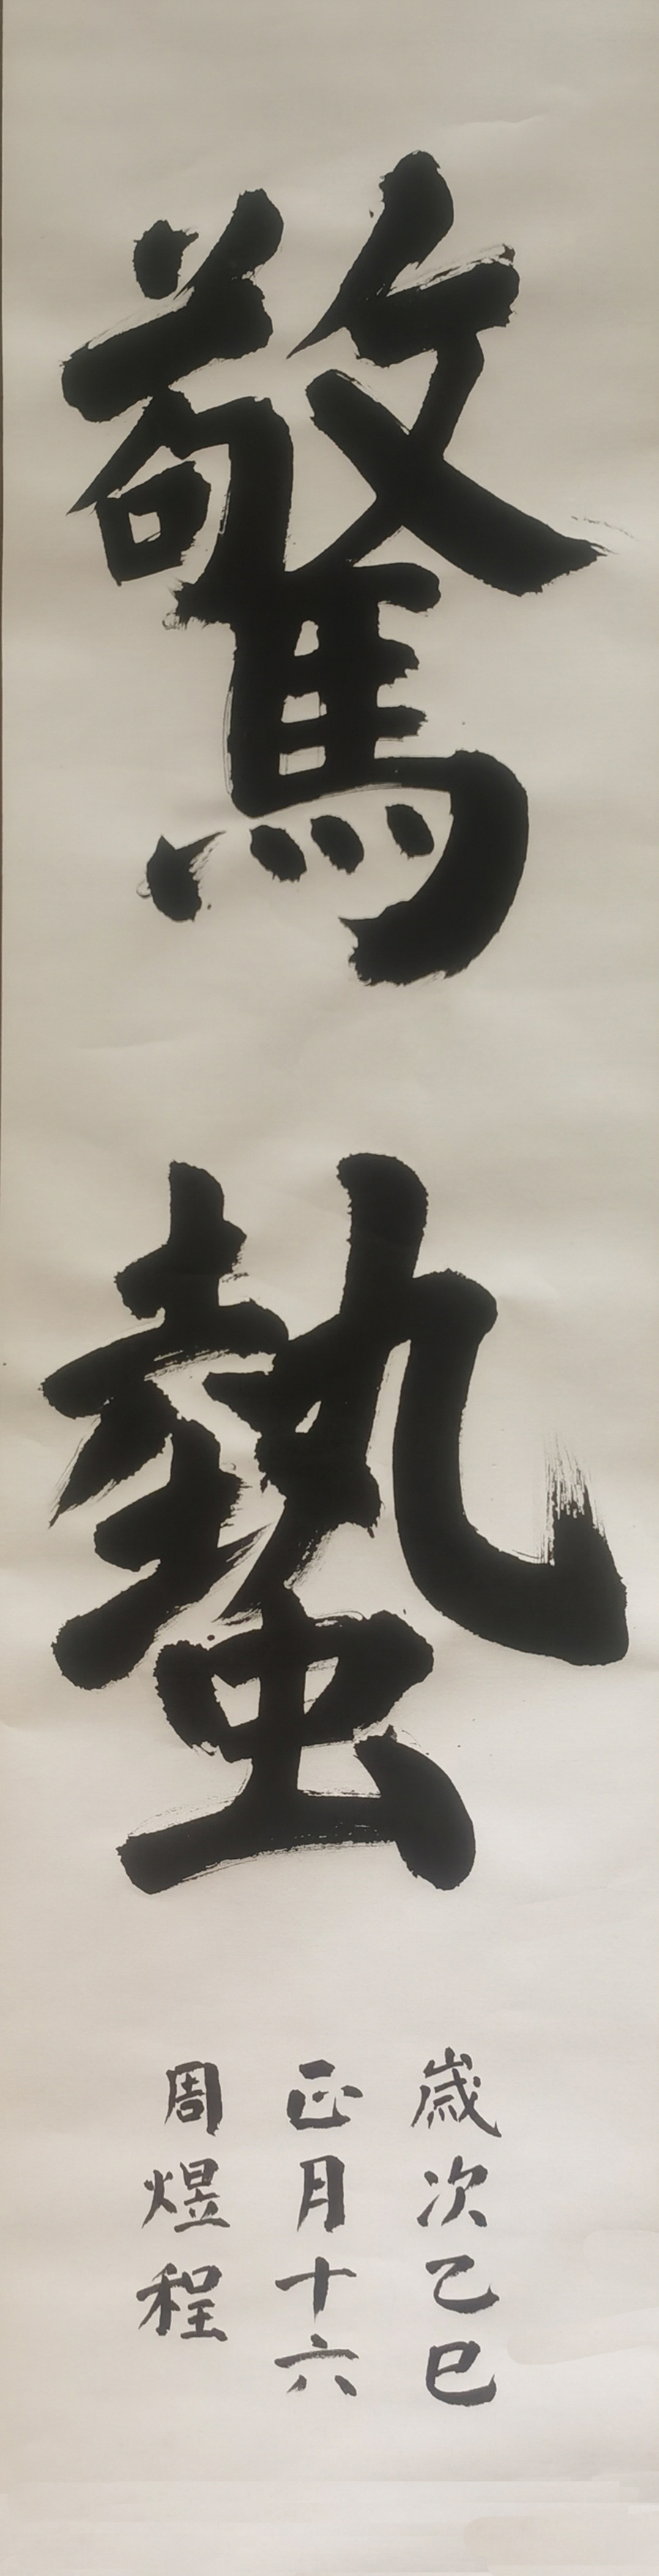 驚蟄
歲次乙巳
正月十六
周煜程